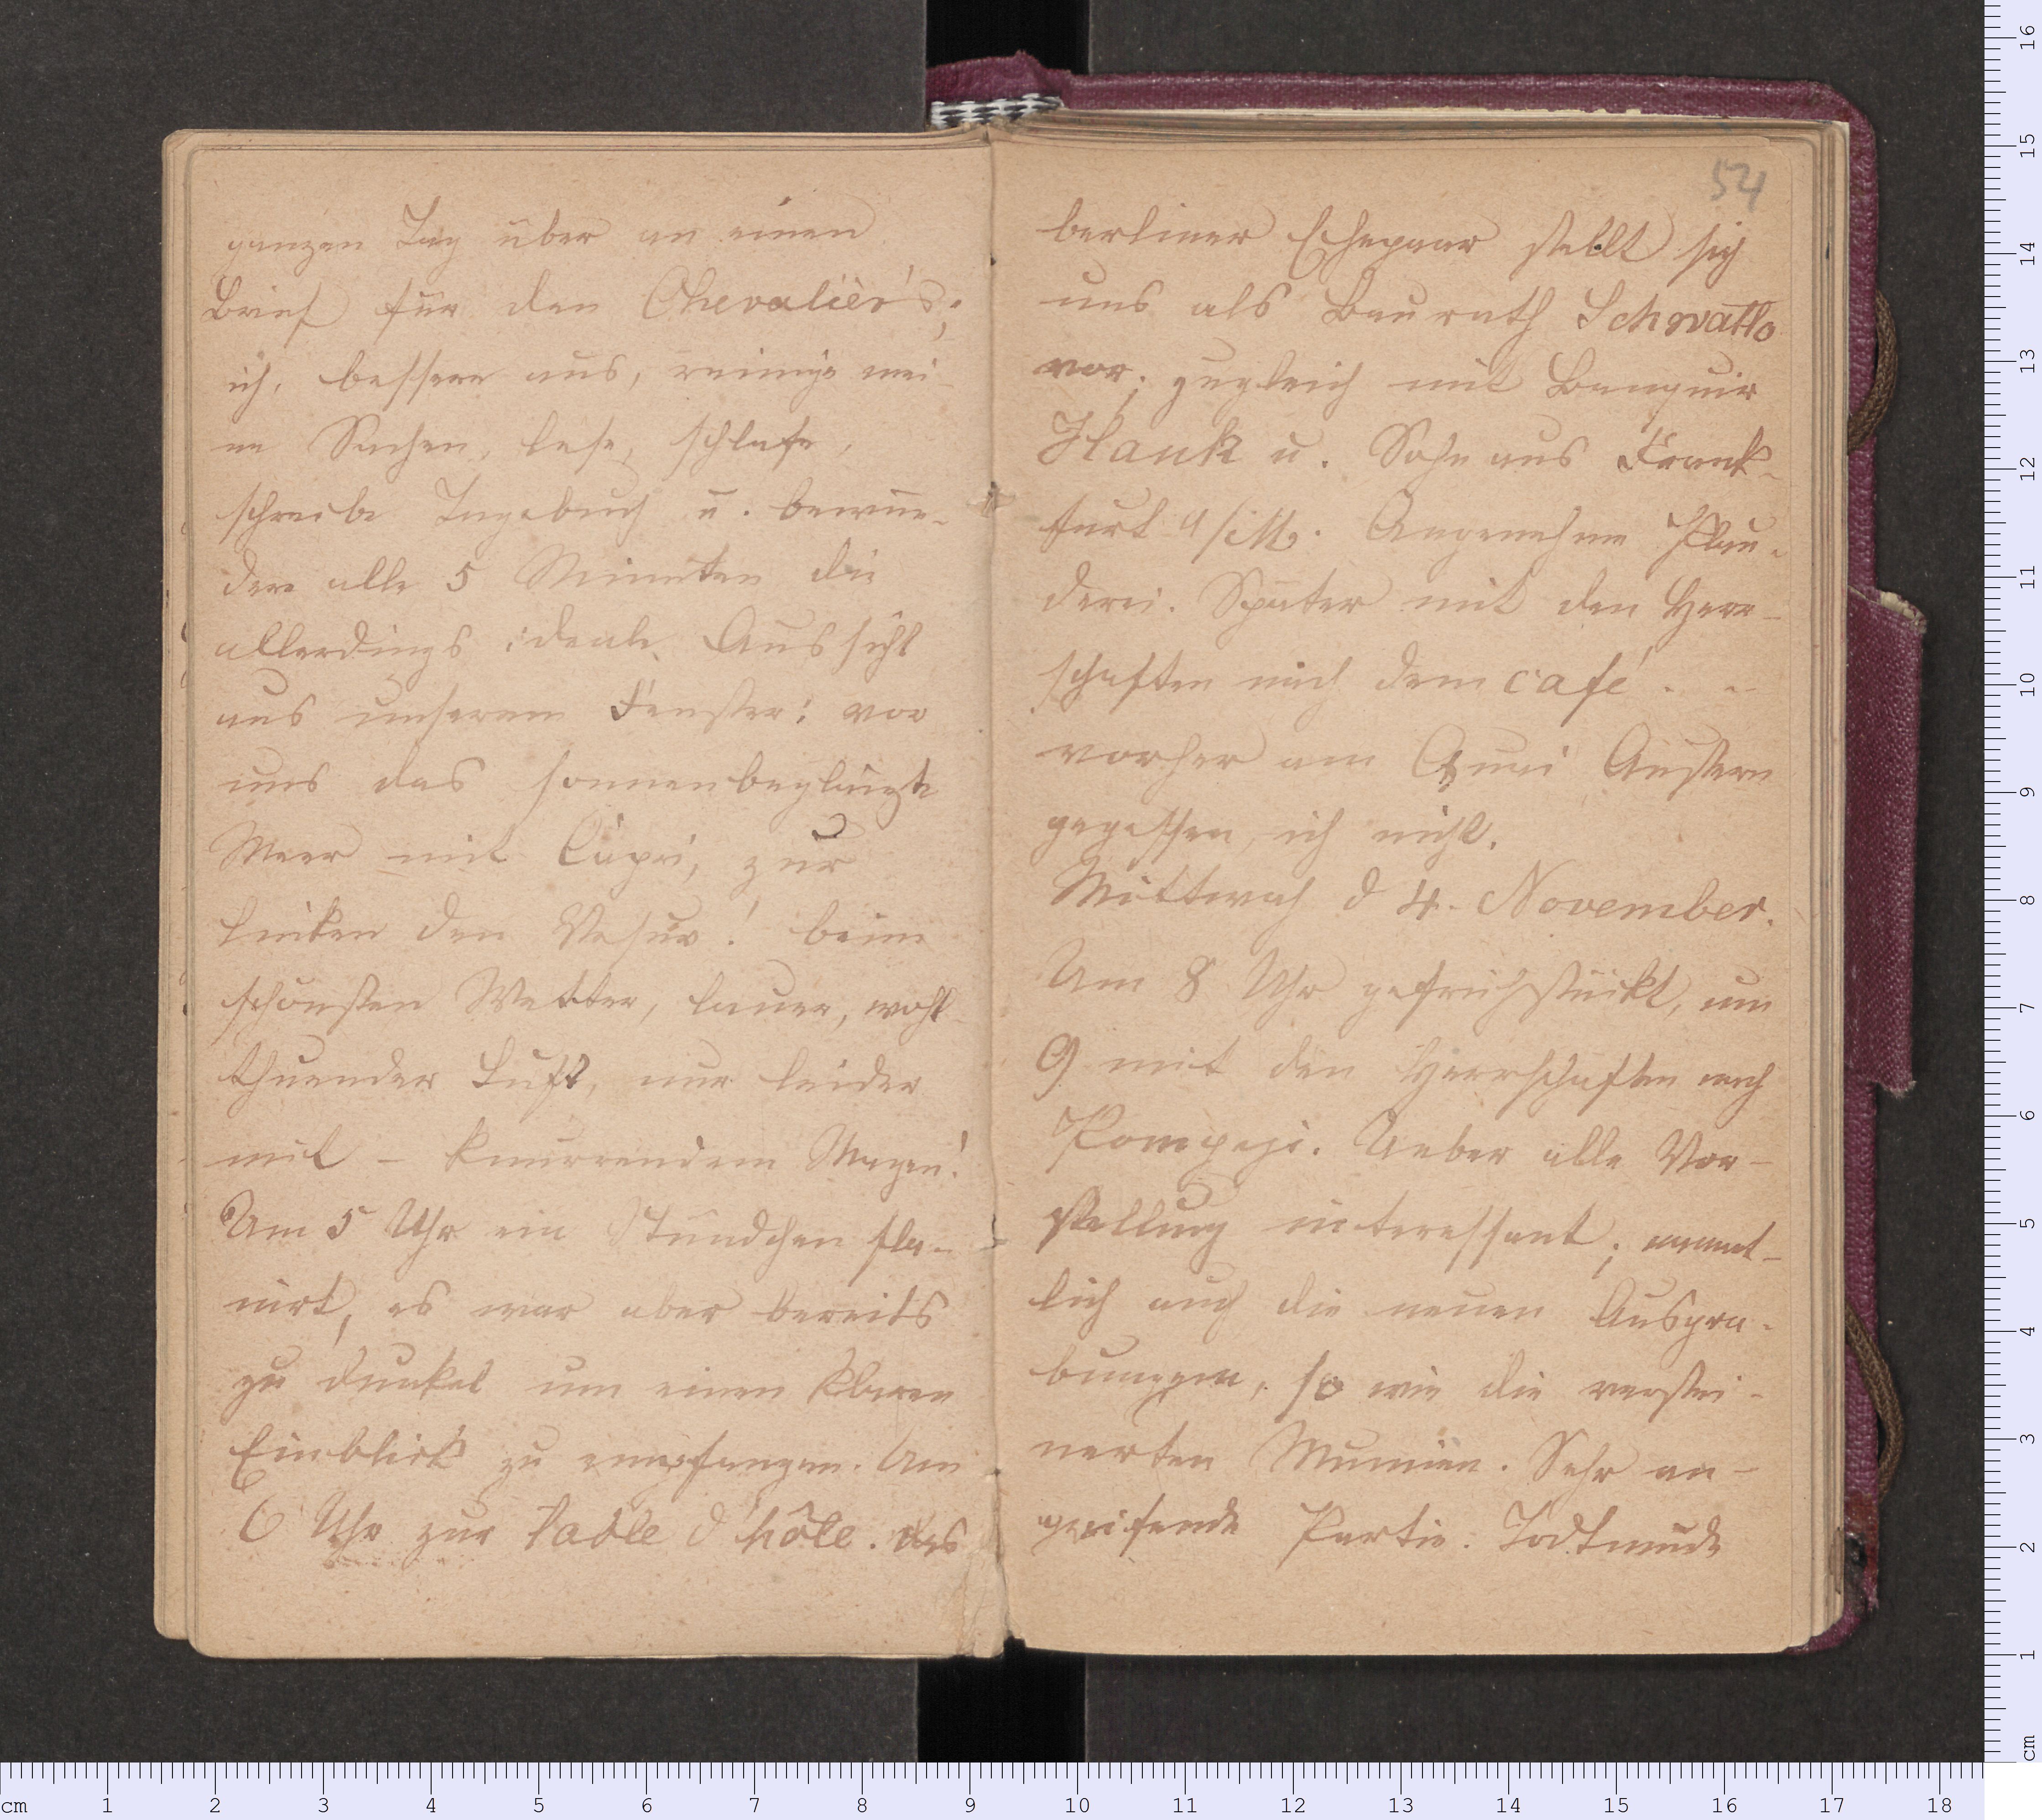 ganzen Tag über an einen
Brief für den Chevalièr's;
ich, bessere aus, reinige mei-
ne Sachen, lese, schlafe,
schreibe Tagebuch u. bewun-
dere alle 5 Minuten die
allerdings ideale Aussicht
aus unserem Fenster: vor
uns das sonnenbeglänzte
Meer mit Capri, zur
linken den Vesuv! beim
schönsten Wetter, lauer, wohl-
thuender Luft, nur leider
mit – knurrendem Magen!
Um 5 Uhr ein Stündchen fla-
nirt, es war aber bereits
zu dunkel um einen klaren
Einblick zu empfangen. Um
6 Uhr zur table d'hôte. das
54
berliner Ehepaar stellt sich
uns als Baurath Schwatlo
vor; zugleich mit Banquir
Hauk u. Sohn aus Frank-
furt a/M. Angenehme Plau-
derei. Später mit den Herr-
schaften nach dem café . .
vorher am Quai Austern
gegessen, ich nicht.
Mittwoch d 4. November.
Um 8 Uhr gefrühstückt, um
9 mit den Herrschaften nach
Pompeji. Ueber alle Vor-
stellung interessant; namt-
lich auch die neuen Ausgra-
bungen, so wie die verstei-
nerten Mumien. Sehr an-
greifende Partie. Todtmüde